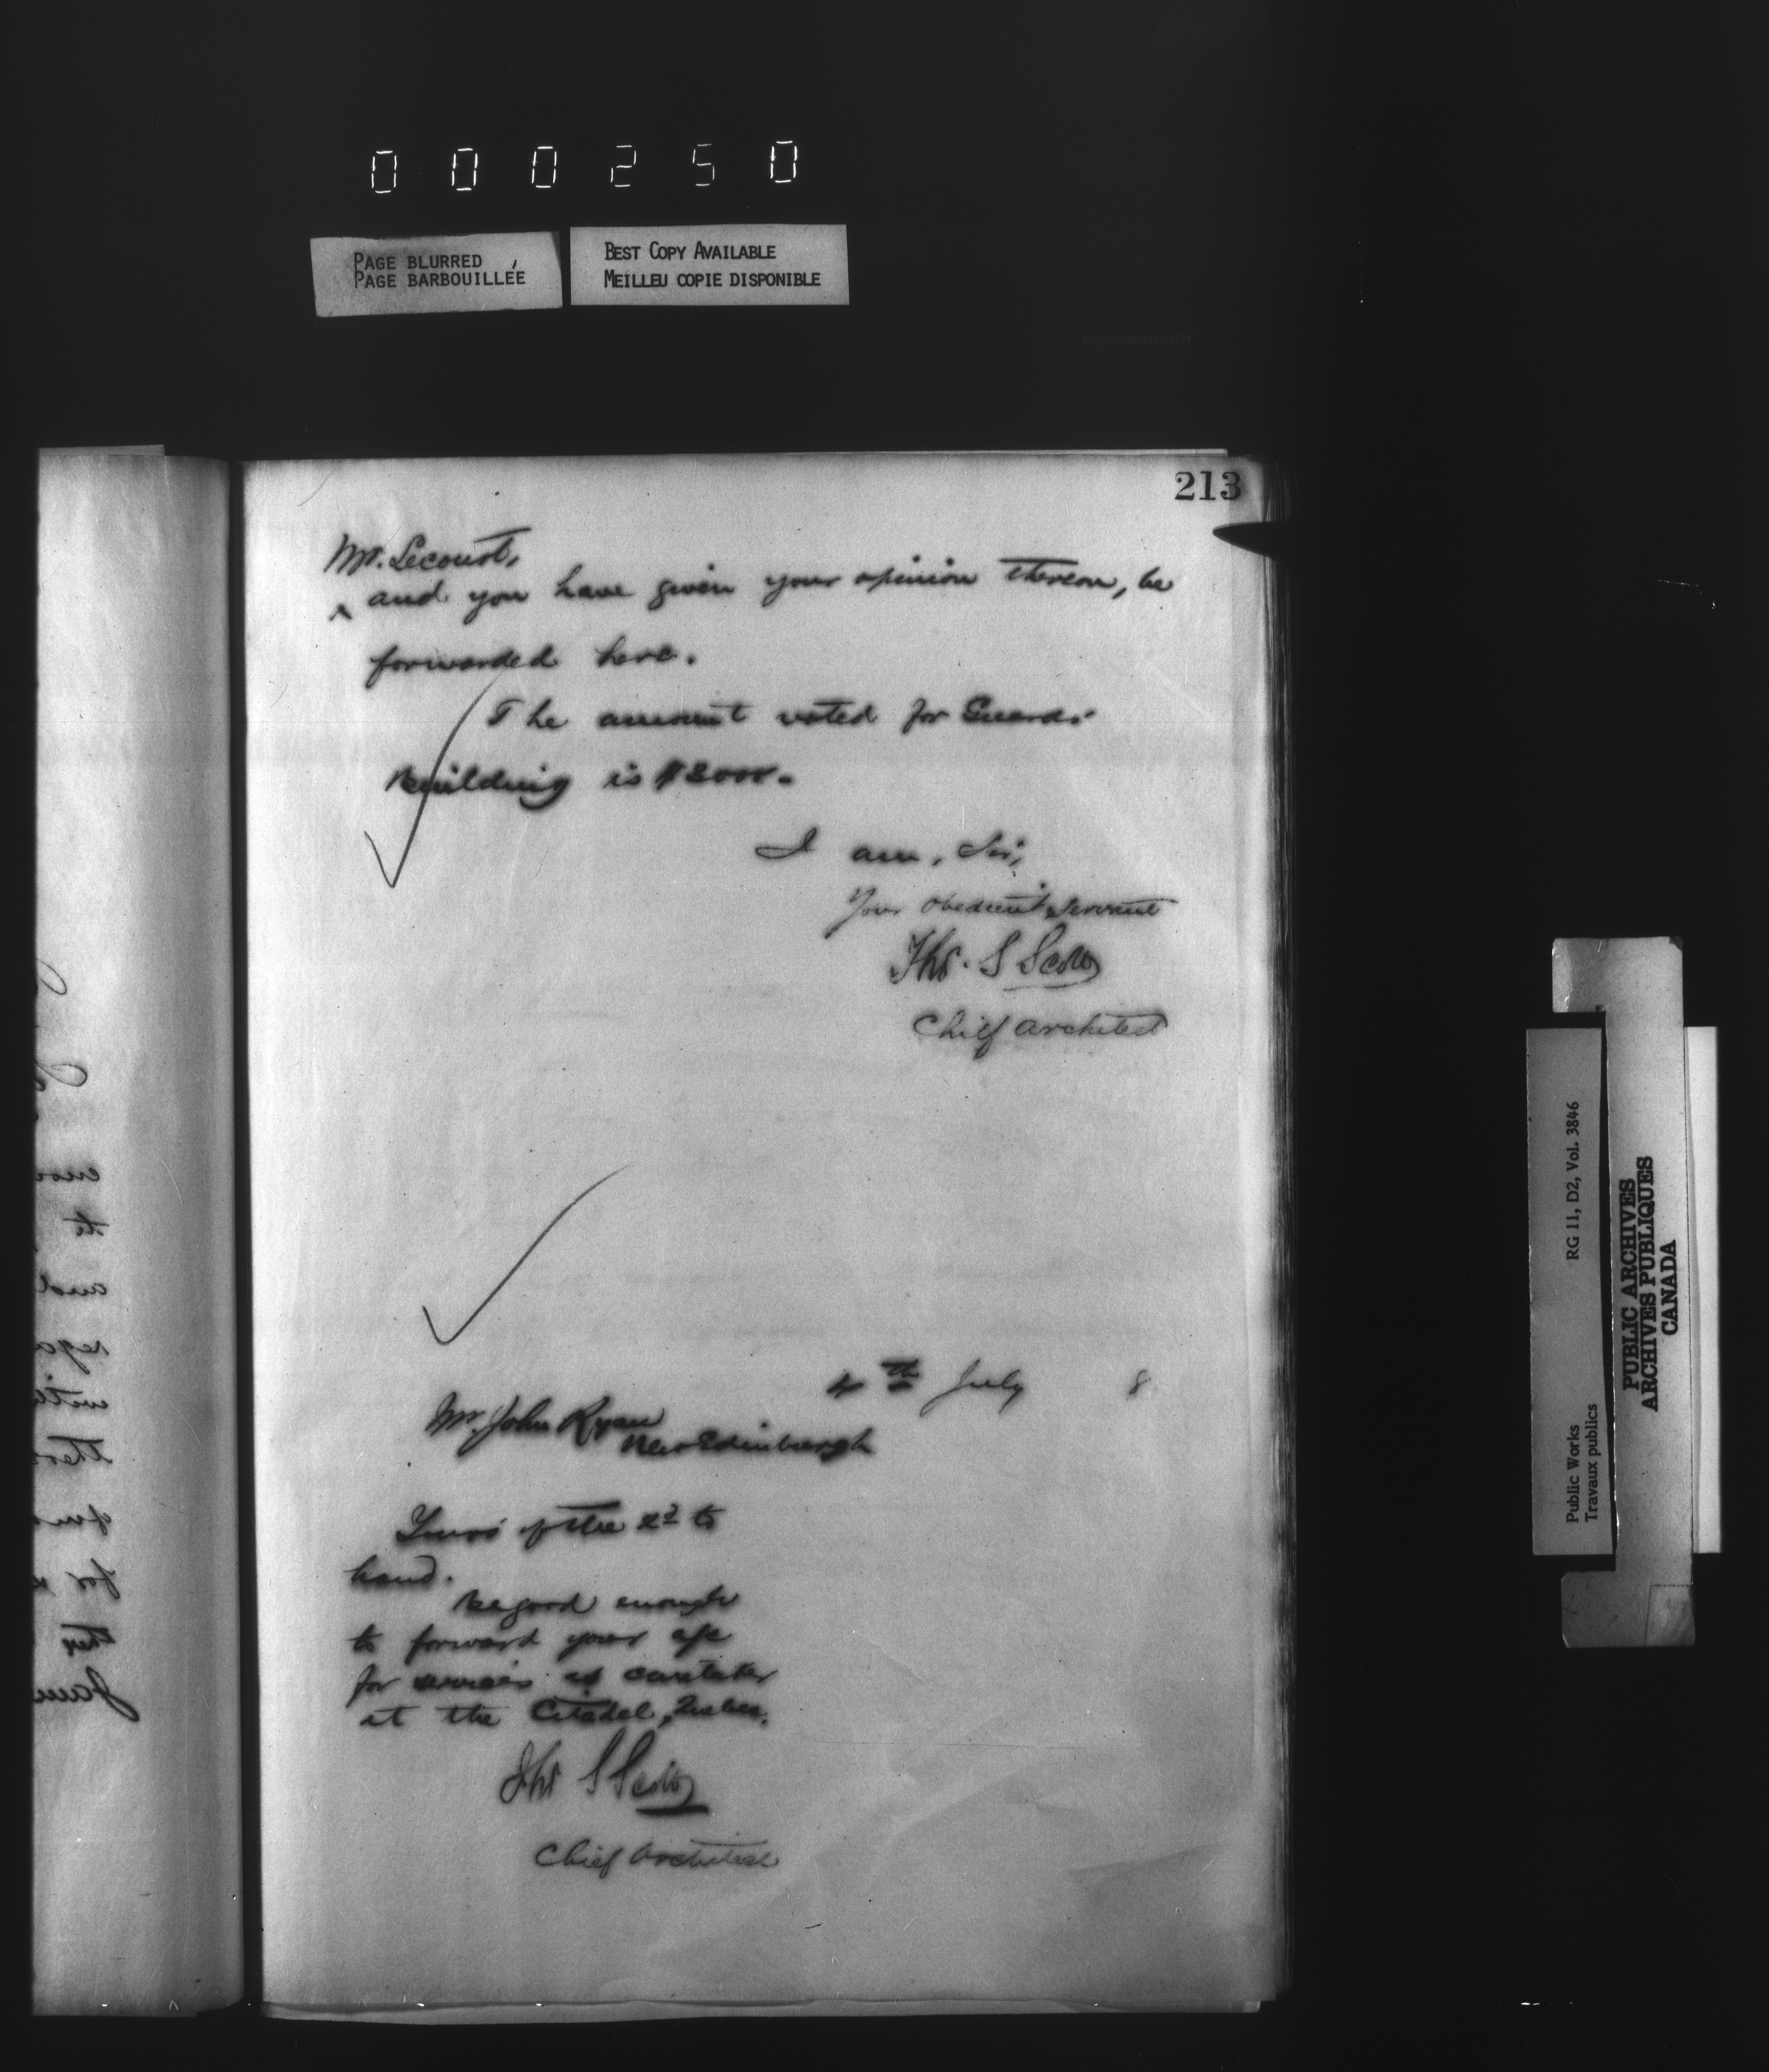 000250
PAGE BLURRED
PAGE BARBOUILLÉE
BEST COPY AVAILABLE
MEILLEU COPIE DISPONIBLE
213
Mr. Lecourt,
^ and you have given your opinion thereon, be
forwarded here.
The amount voted for Guards
Building is $2000.
I am, Sir,
Your obedient servant
Thos. S Scott
Chief Architect
4th July 8
Mr. John Ryan
New Edinburgh
Yours of the 2d to
hand.
Be good enough
to forward your a/c
for services as caretaker
at the Citadel, Quebec.
Thos S Scott
Chief Architect
Public Works
Travaux publics
RG 11, D2, Vol. 3846
PUBLIC ARCHIVES
ARCHIVES PUBLIQUES
CANADA